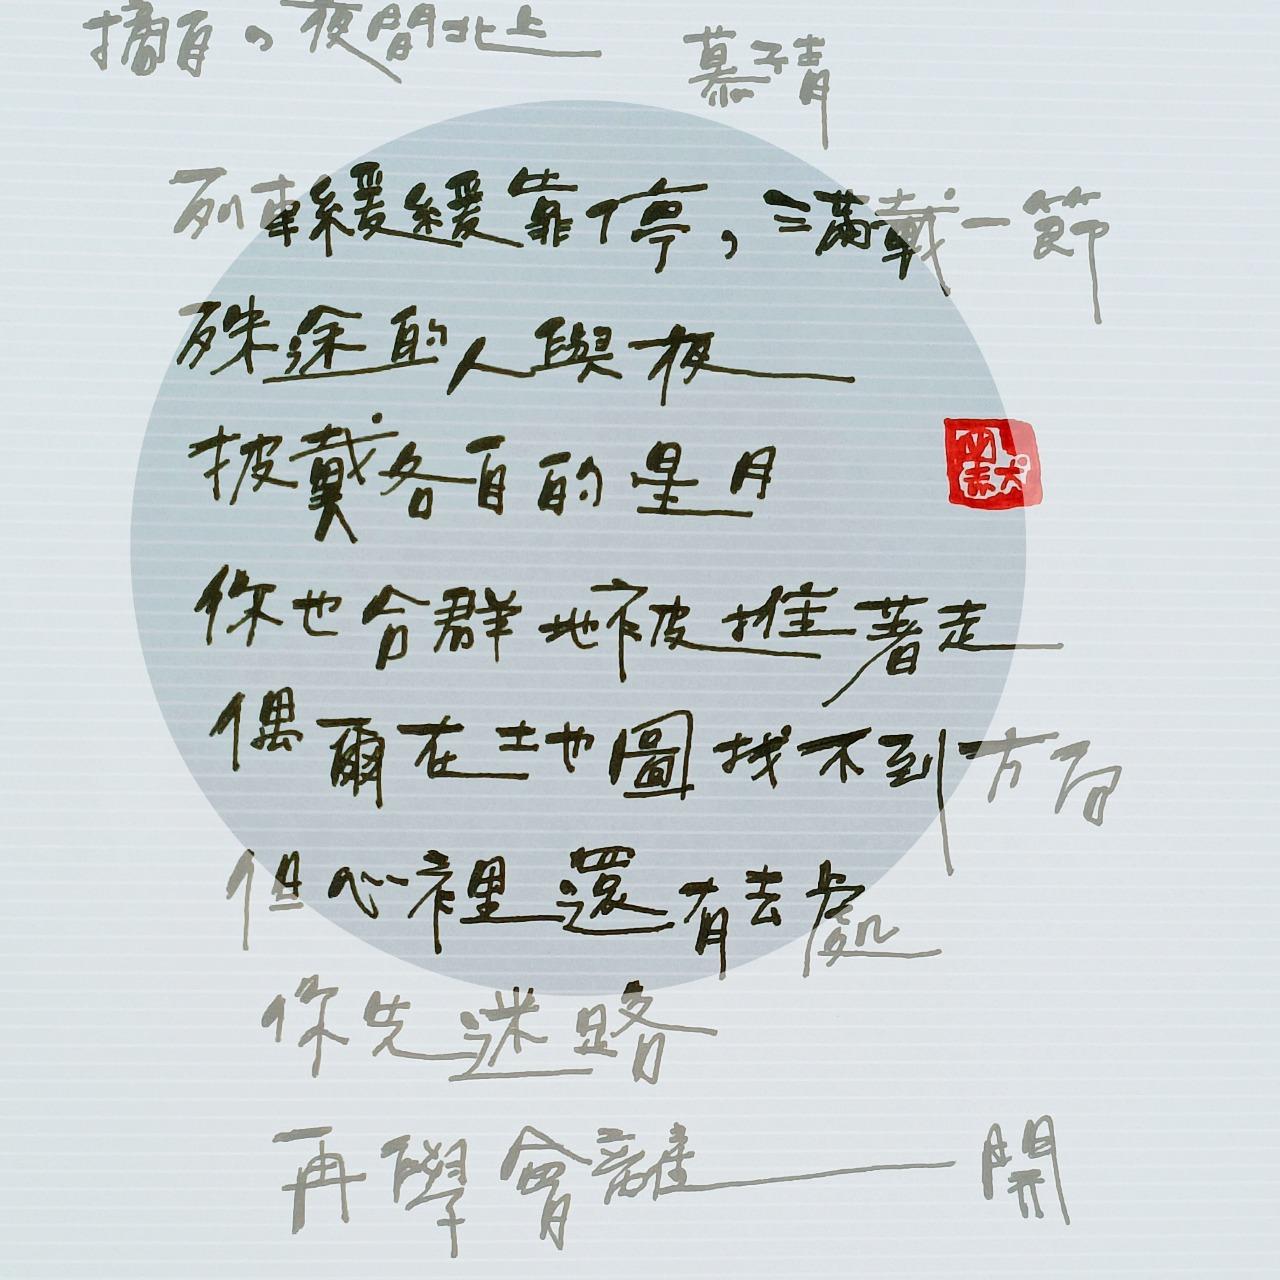 摘自。夜間北上 慕子青
列車緩緩靠停，滿載一節
殊途的人與夜
披戴各自的星月
你也合群地被推著走
偶爾在地圖找不到方向
但心裡還有去處
你先迷路
再學會離開